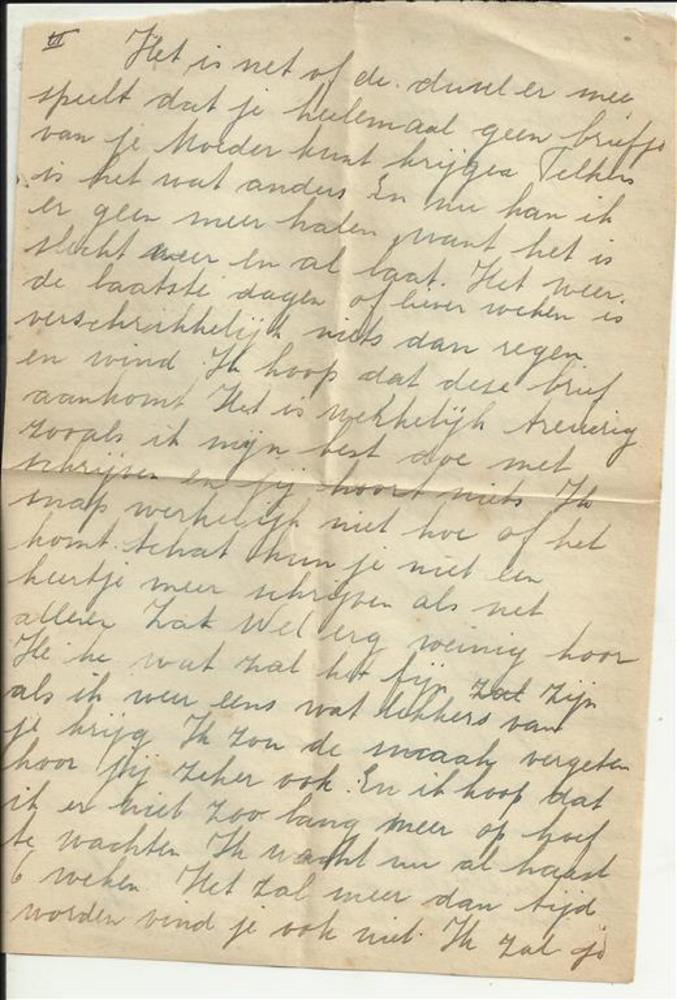 II Het is net of de duvel er mee
speelt dat je heelemaal geen briefje
van je Moeder kunt krijgen Telkens
is het wat anders En nu kan ik
er geen meer halen want het is
slecht weer en al laat. Het weer.
de laatste dagen of liever weken is
verschrikkelijk niets dan regen
en wind. Ik hoop dat deze brief
aankomt Het is wekkelijk treurig
zooals ik mijn best doe met
schrijven en jij hoort niets Ik
snap werkelijk niet hoe of het
komt. Schat kun je niet een
keertje meer schrijven als net
alleen Zat Wel erg weinig hoor
He he wat zal het fijn zal zijn
als ik weer eens wat lekkers van
je krijg Ik zou de smaak vergeten
hoor jij zeker ook. En ik hoop dat
ik er niet zoo lang meer op hoef
te wachten Ik wacht nu al haast
6 weken Het zal meer dan tijd
worden vind je ook niet. Ik zal je